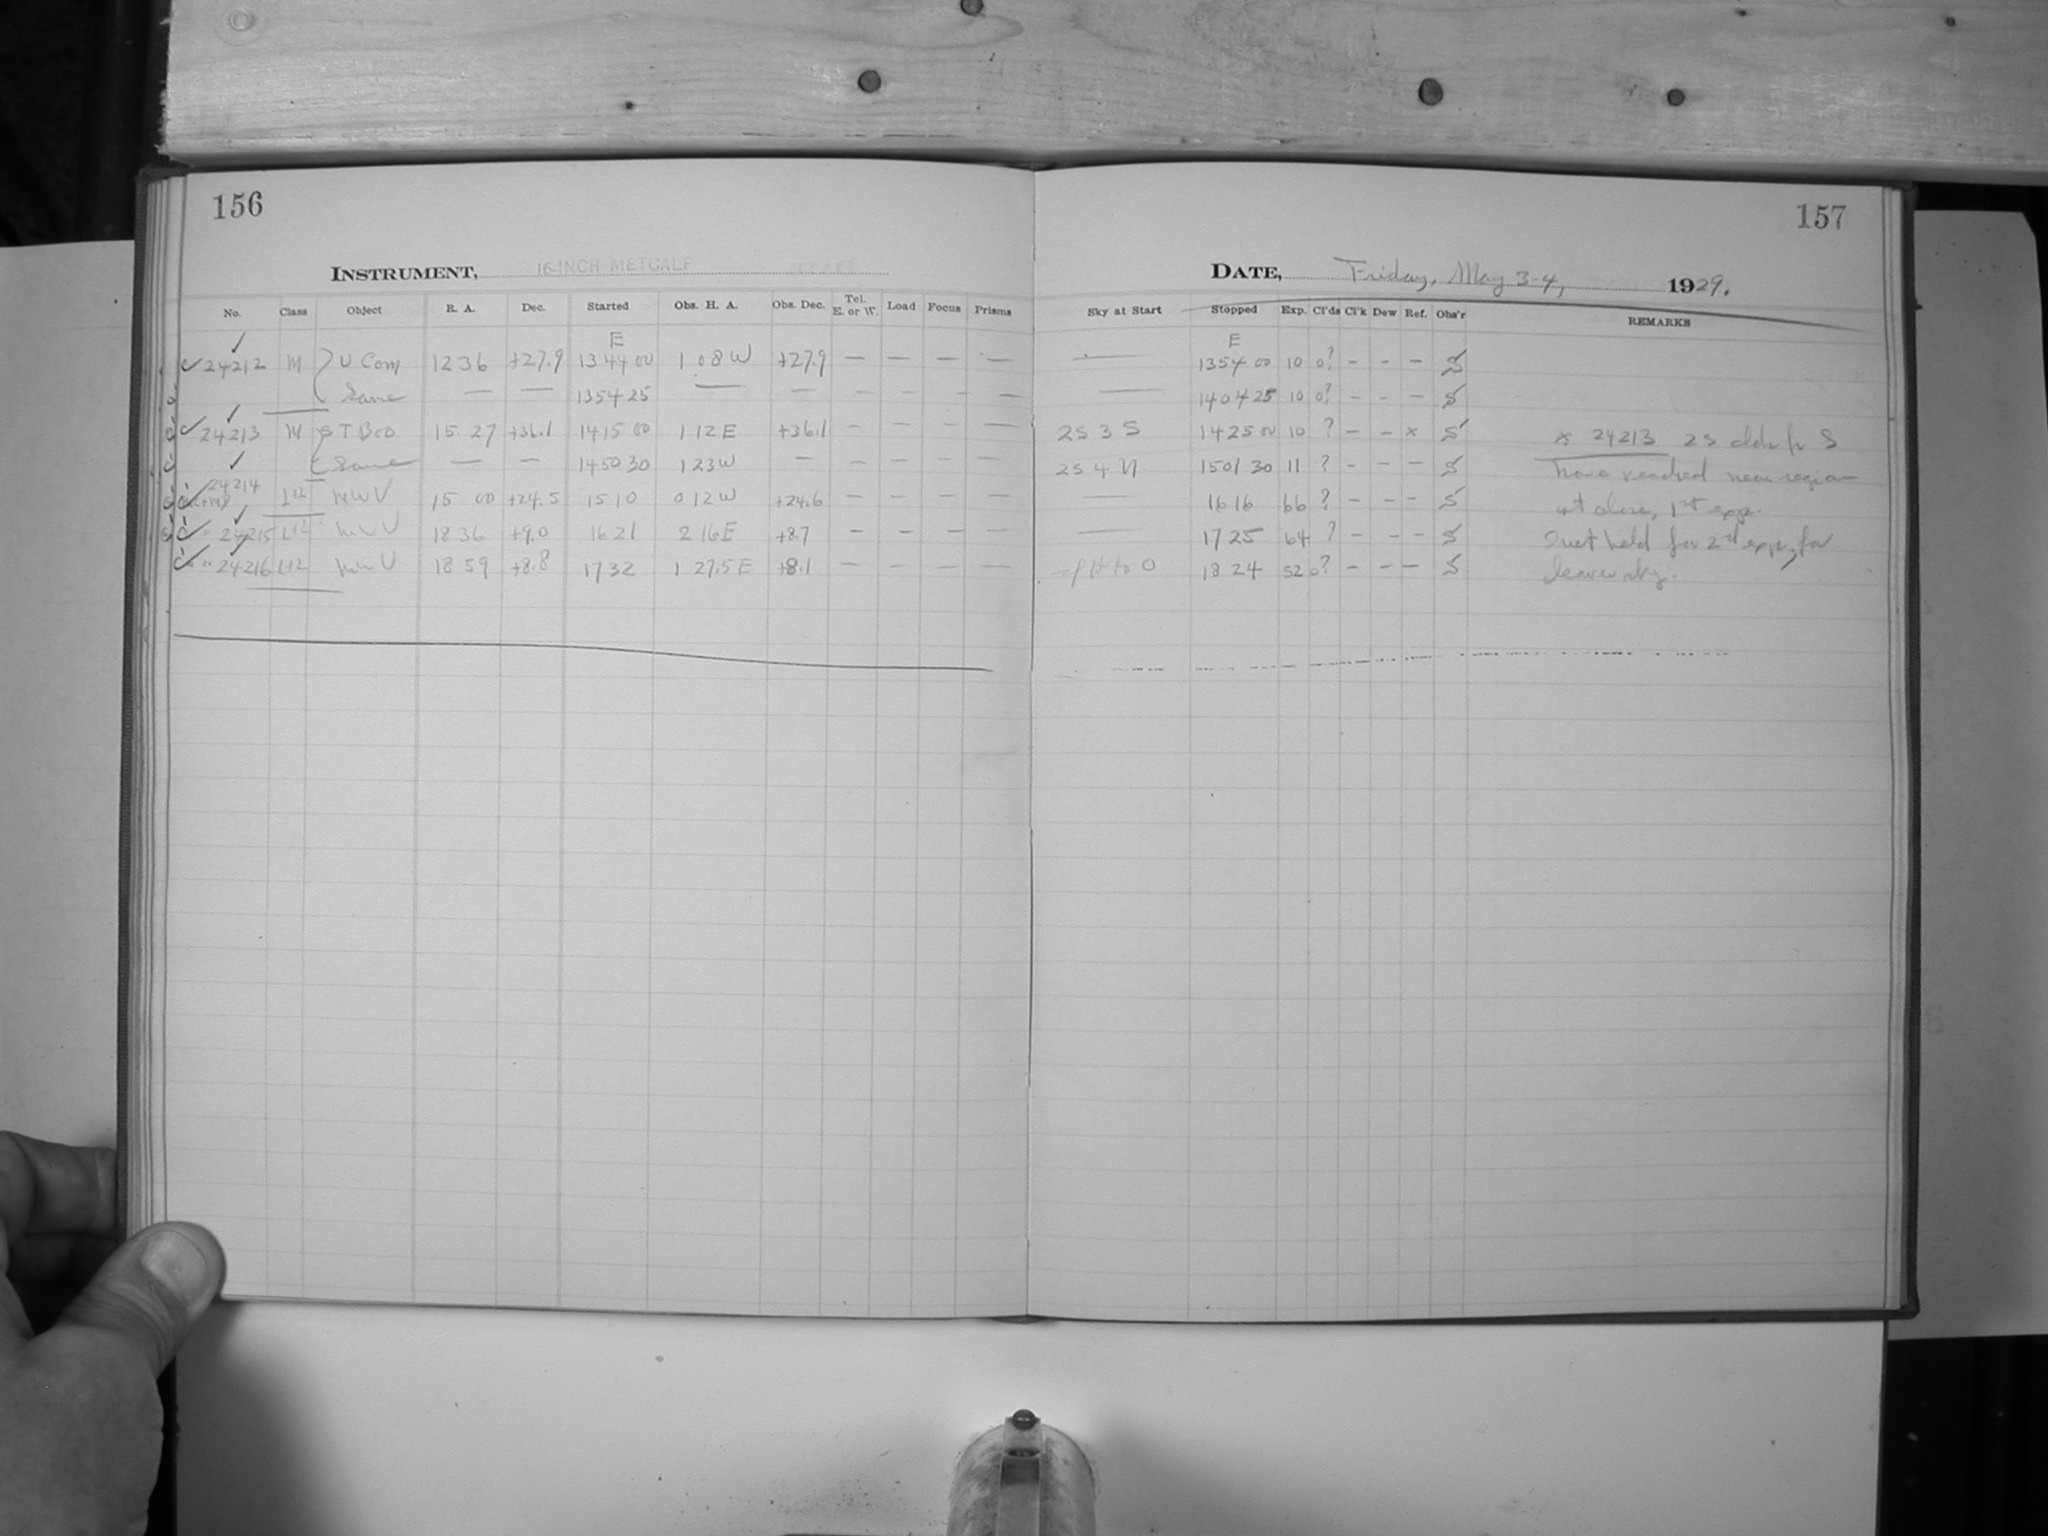 156
157
INSTRUMENT, 16-INCH METCALF
DATE, Friday, May 3-4, 1929.
No. Class Object R. A. Dec. Started Obs. H. A. Obs. Dec. Tel. E. or W. Load Focus Prisms Sky at Start Stopped Exp. Cl'ds Cl'k Dew Ref. Obs'r REMARKS
E E
24212 M U Com 12 36 +27.9 13 44 00 1 08 W +27.9 — — — — — 1354 00 10 0? - - - S
Same — — 1354 25 — — — — — — — 1404 25 10 0? - - - S
24213 M T Boo 15 27 +36.1 1415 00 1 12 E +36.1 — — — — 2S 3 S 1425 00 10 ? - - x S x 24213 2S clds fr S
Same — — 1450 30 1 23 W — — — — — 2S 4 N 1501 30 11 ? - - - S have reached near region
24214 L+2 MWV 15 00 +24.5 15 10 0 12 W +24.6 — — — — — 16 16 66 ? - - - S at close, 1st exp.
24215 L+2 MWV 18 36 +9.0 16 21 2 16 E +8.7 — — — — — 17 25 64 ? - - - S held for 2nd exp, for
24216 L+2 MWV 18 59 +8.8 17 32 1 27.5 E +8.1 — — — — to 0 18 24 52 0? - - — S